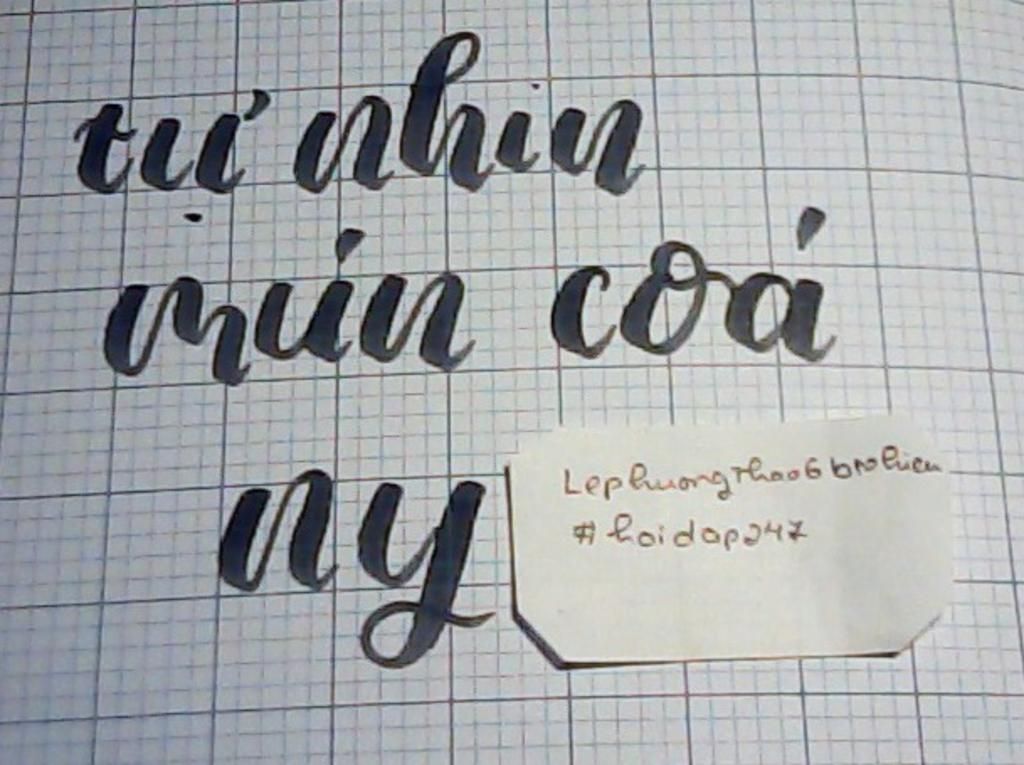 tứ nhin
mún coá
ny
LephuongThao6brohieu
#hoidap247